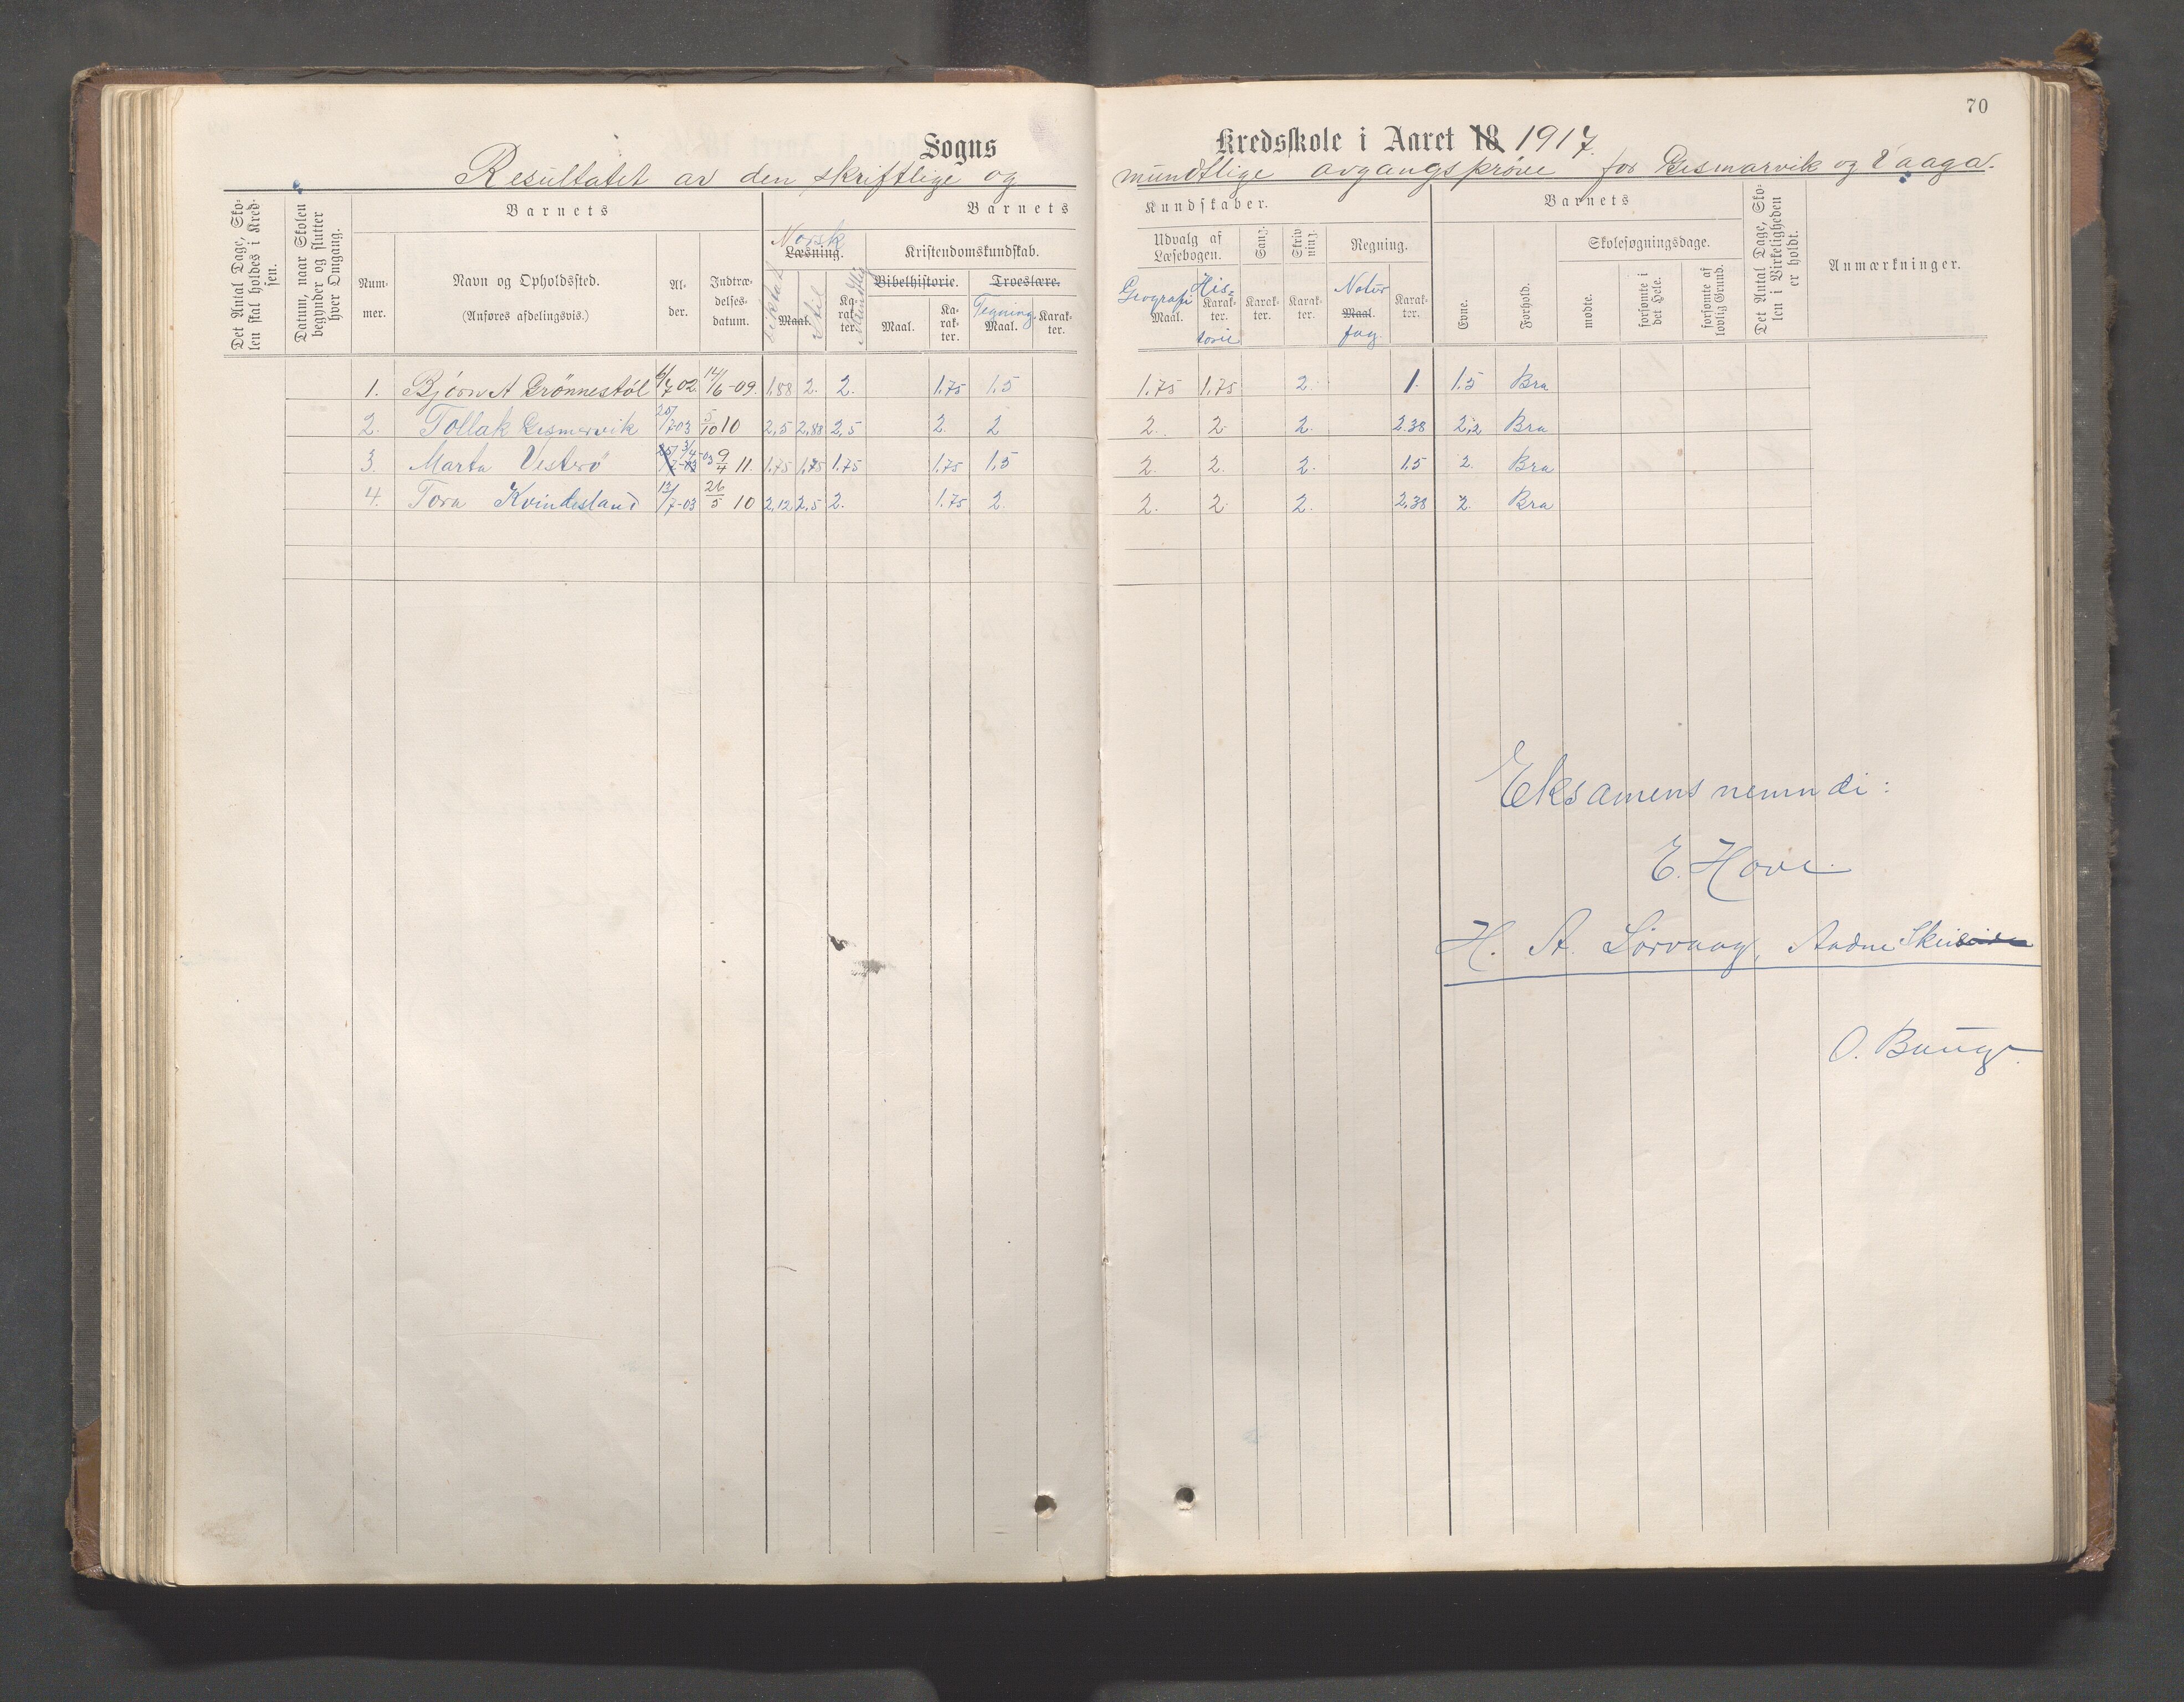 70
Sogns Kredsskole i Aaret 18 1917.
Resultatet av den skriftlige og mundtlige avgangsprøve for Gismarvik og Vaaga.
Det Antal Dage, Skolen skal holdes i Kredsen.
Datum, naar Skolen begynder og slutter hver Omgang.
Barnets
Nummer.
Navn og Opholdssted.
(Anføres afdelingsvis.)
Alder.
Indtrædelsesdatum.
Barnets Kundskaber.
Norsk
Læsning.
Diktat
Maal.
Stil
Karakter.
Mundtlig
Kristendomskundskab.
Bibelhistorie.
Maal.
Karakter.
Troeslære.
Tegning.
Maal.
Karakter.
Udvalg af Læsebogen.
Geografi
Maal.
His-
Karakter.
torie
Sang.
Karakter.
Skrivning.
Karakter.
Regning.
Natur
Maal.
fag.
Karakter.
Barnets
Evne.
Forhold.
Skolesøgningsdage.
mødte.
forsømte i det Hele.
forsømte af lovlig Grund.
Det Antal Dage, Skolen i Virkeligheden er holdt.
Anmærkninger.
1. Bjørn A Grönnestöl 6/7 02. 14/6-09. 1,88 2. 2. 1.75 1.5 1.75 1.75 2. 1. 1.5 Bra
2. Tollak Gismervik 25/7-03 5/10 10 2,5 2,88 2,5 2. 2 2. 2. 2. 2.38 2,2 Bra
3. Marta Vesterö 25/7-03 3/4-03 9/4 11. 1,75 1,75 1.75 1.75 1.5 2. 2. 2. 1.5 2. Bra
4. Tora Kvindesland 13/7-03 26/5 10 2,12 2,5 2. 1.75 2. 2. 2. 2. 2,38 2. Bra
Eksamensnemndi:
E. Hove
H. A. Sörvaag, Aadne
O. Bauge.